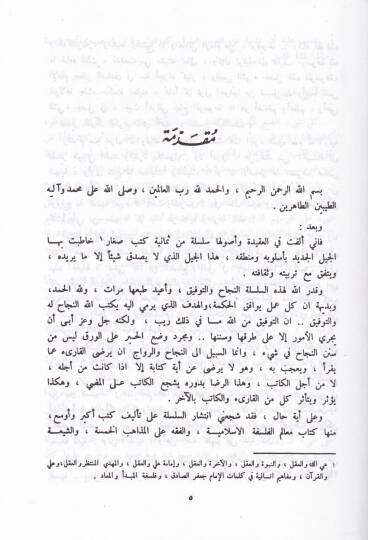 مُقَدّمَة
بسم الله الرحمن الرحيم ، والحمد لله رب العالمين ، وصلى الله على محمد وآله
الطيبين الطاهرين .
وبعد :
فاني ألفت في العقيدة وأصولها سلسلة من ثمانية كتب صغار ١ خاطبت بهـا
الجيل الجديد بأسلوبه ومنطقه ، هذا الجيل الذي لا يصدق شيئاً إلا ما يريده ،
ويتفق مع تربيته وثقافته .
وقدر الله لهذه السلسلة النجاح والتوفيق ، وأعيد طبعها مرات ، ولله الحمد،
وبديهة ان كل عمل يوافق الحكمة،والهدف الذي يرمي اليه يكتب الله النجاح له
والتوفيق .. ان التوفيق من الله مـا في ذلك ريب ، ولكنه جل وعز أبى أن
يجري الأمور إلا على طرقها وسننها .. ومجرد وضع الحـبر على الورق ليس من
سنن النجاح في شيء ، وانما السبيل الى النجاح والرواج ان يرضى القارىء عما
يقرأ ، ويعجب به ، وهو لا يرضى عن أية كتابة إلا اذا كانت من أجله ،
لا من أجل الكاتب ، وهذا الرضا بدوره يشجع الكاتب عـلى المضي ، وهكذا
يؤثر ويتأثر كل من القارىء والكاتب بالآخر .
وعلى أية حال ، فقد شجعني انتشار السلسلة على تأليف كتب أكبر وأوسع،
منها كتاب معالم الفلسفة الاسلاميـة ، والفقه على المذاهب الخمسة ، والشيعـة
١ هي الله والعقل ، والنبوة والعقل ، والآخرة والعقل ، وإمامة علي والعقل ، والمهدي المنتظر والعقل،وعلي
والقرآن ، ومفاهيم انسانية في كلمات الإمام جعفر الصادق ، وفلسفة المبـدأ والمعاد .
٥